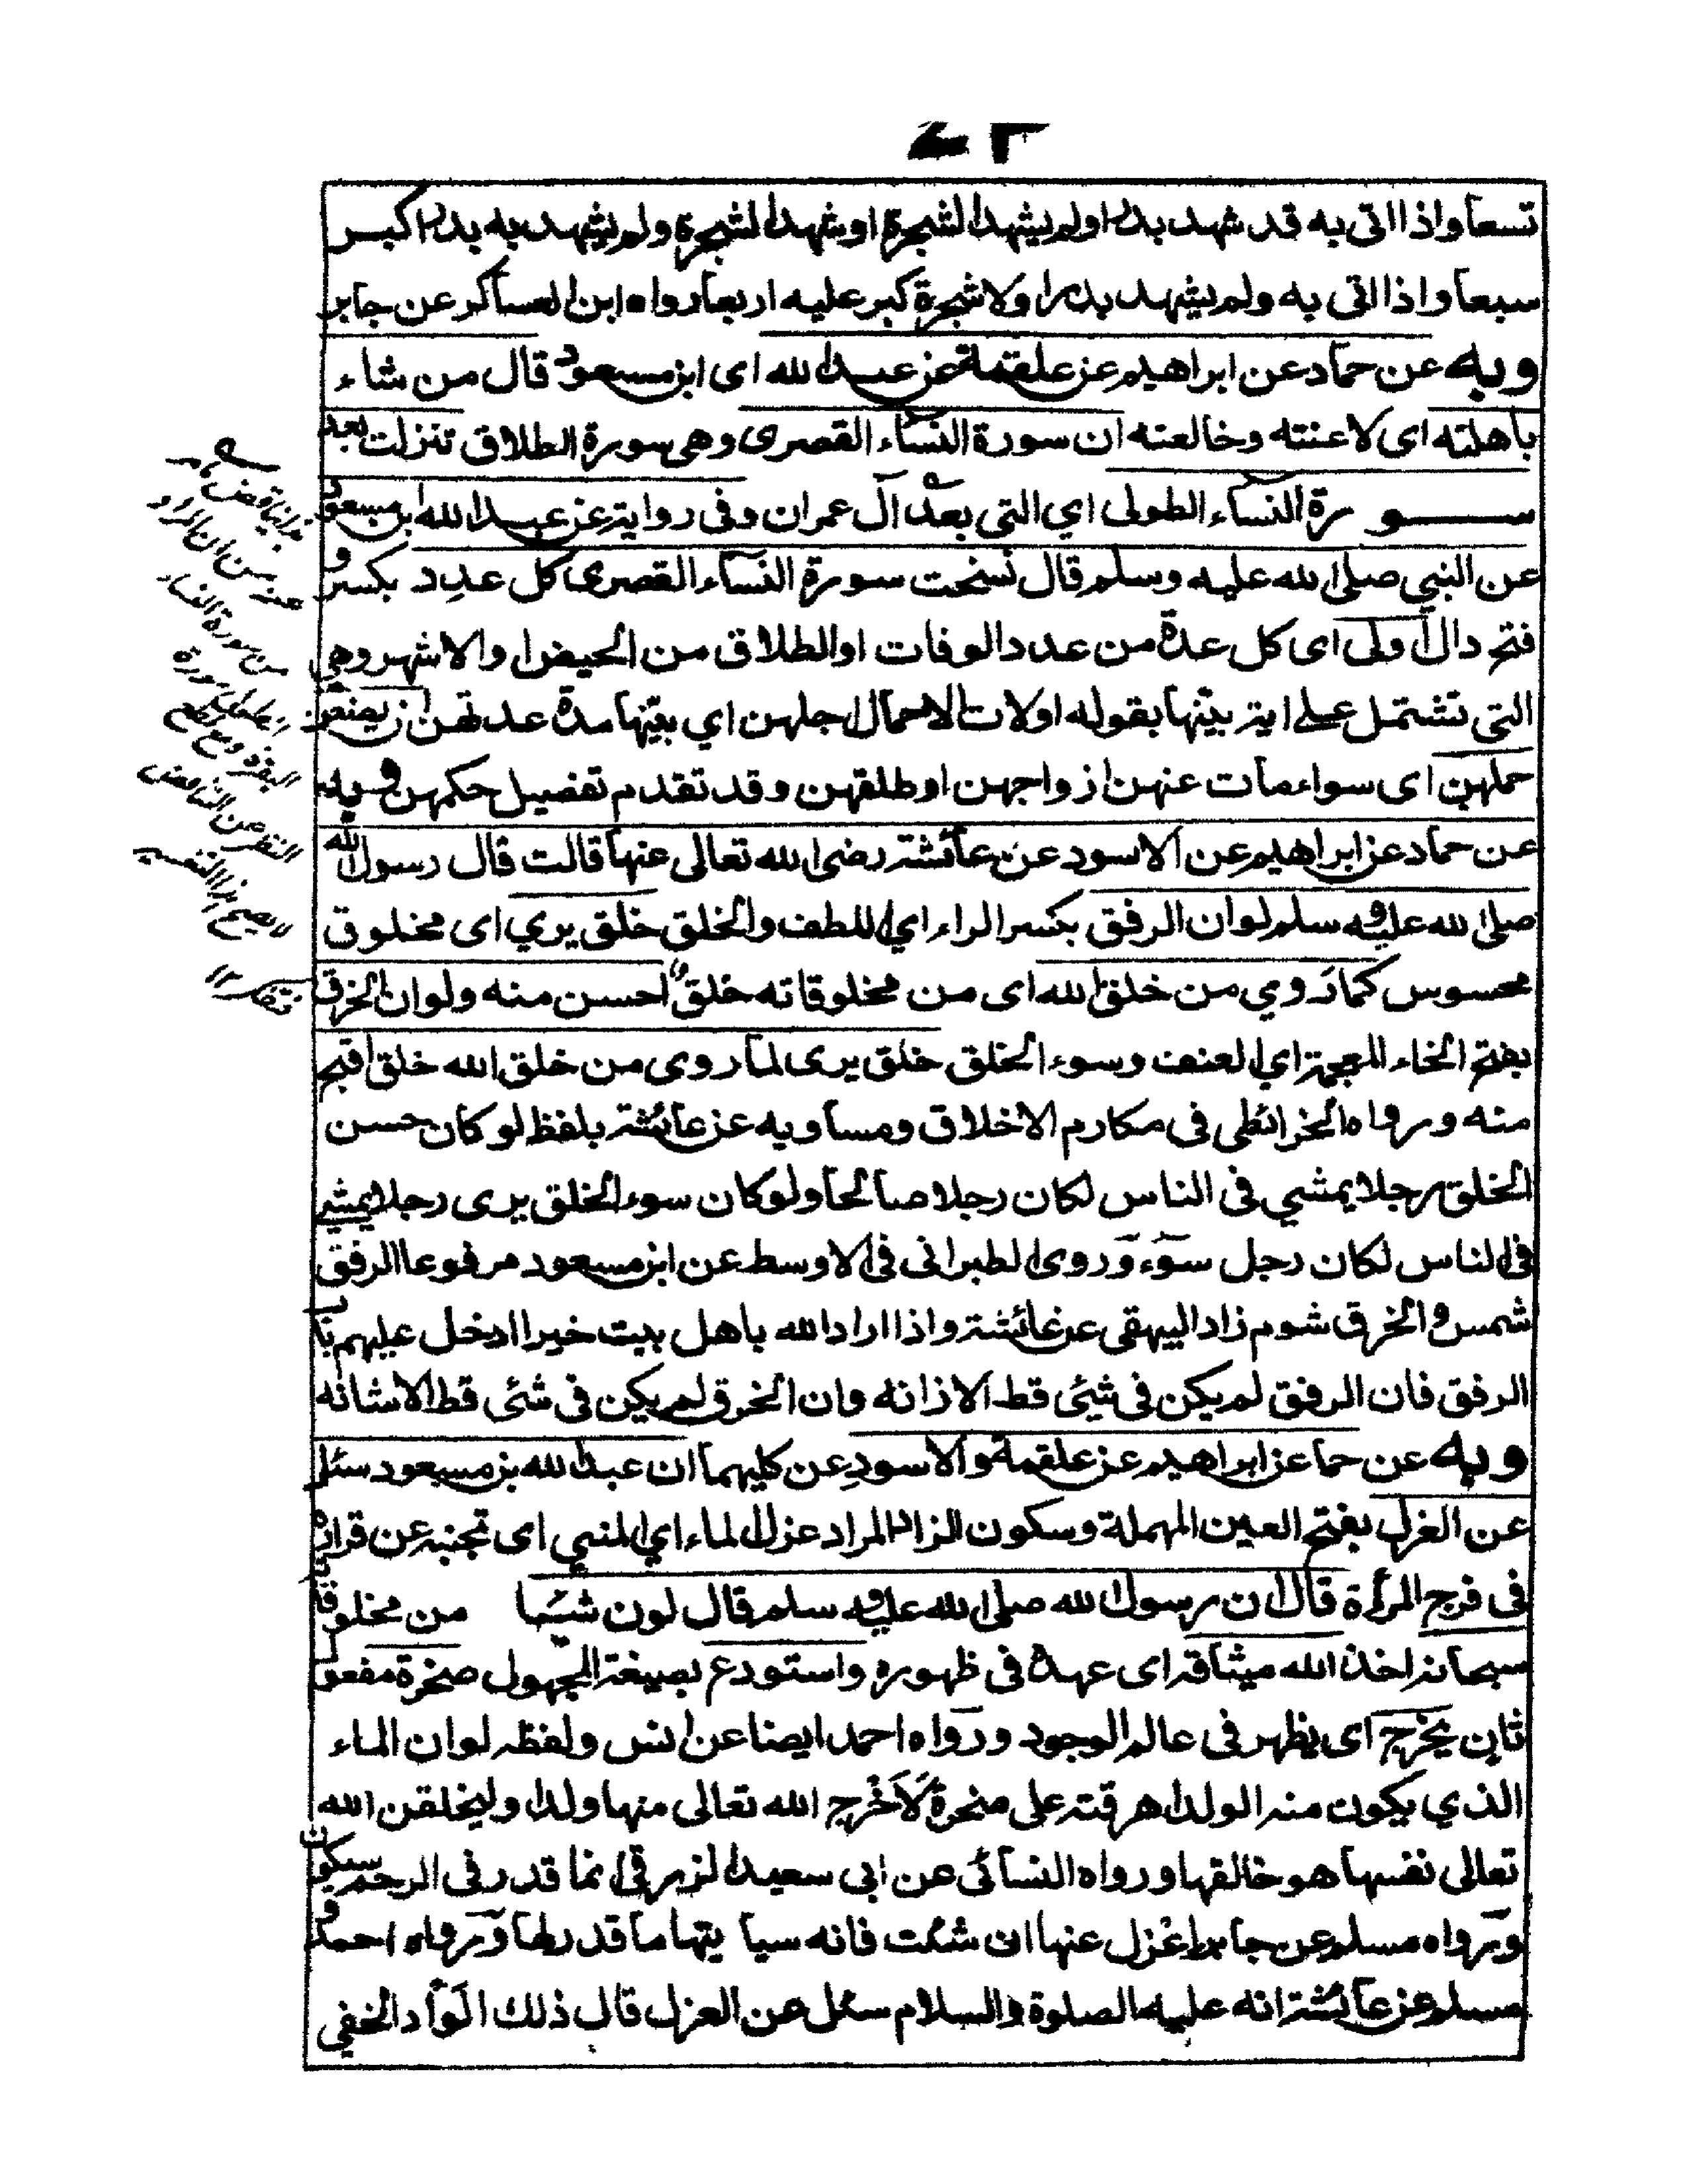 تسعا واذا اتى به قد شهد بدرا ولم يشهد الشجرة او شهد الشجرة ولم يشهد به بدرا كبر
سبعا واذا اتى به ولم يشهد بدرا ولا شجرة كبر عليه اربعا رواه ابن العساكر عن جابر
وبه عن حماد عن ابراهيم عن علقمة عن عبد الله اى ابن مسعود قال من شاء
باهلته اى لاعنته وخالعته ان سورة النساء القصرى وهى سورة الطلاق تنزلت بعد
سورة النساء الطولى اي التي بعد آل عمران وفى رواية عن عبد الله بن مسعود
عن النبي صلى الله عليه وسلم قال نسخت سورة النساء القصرى كل عدد بكسر و
فتح دال اولى اى كل عدة من عدد الوفات او الطلاق من الحيض او الاشهر وهي
التى تشتمل على اية بينها بقوله اولات الاحمال اجلهن اي بينها مدة عدتهن ان يضعن
حملهن اى سواء مات عنهن ازواجهن او طلقهن وقد تقدم تفضيل حكمهن وبه
عن حماد عن ابراهيم عن الاسود عن عائشة رضى الله تعالى عنها قالت قال رسول الله
صلى الله عليه وسلم لوان الرفق بكسر الراء اي اللطف والخلق خلق يري اى مخلوق
محسوس كما روي من خلق الله اى من مخلوقاته خلق احسن منه ولوان الخرق
بفتح الخاء المعجمة اي العنف وسوء الخلق خلق يرى لما روى من خلق الله خلق اقبح
منه ورواه الخرائطى فى مكارم الاخلاق ومساويه عن عائشة بلفظ لو كان حسن
الخلق رجلا يمشي فى الناس لكان رجلا صالحا ولو كان سوء الخلق يرى رجلا يمشي
فى الناس لكان رجل سوء وروى الطبرانى فى الاوسط عن ابن مسعود مرفوعا الرفق
شمس والخرق شوم زاد البيهقى عن عائشة واذا اراد الله باهل بيت خيرا ادخل عليهم باب
الرفق فان الرفق لم يكن فى شئى قط الا زانه وان الخرق لم يكن فى شئى قط الا شانه
وبه عن حما عن ابراهيم عن علقمة والاسود عن كليهما ان عبد الله بن مسعود سئل
عن العزل بفتح العين المهملة وسكون الزاء المراد عزل الماء اي المني اى تجنبه عن قراره
فى فرج المرأة قال ان رسول الله صلى الله عليه وسلم قال لون شيئا من مخلوقاته
سبحانه اخذ الله ميثاقه اى عهده فى ظهوره واستودع بصيغة المجهول صخرة مفعول
ثان يخرج اى يظهر فى عالم الوجود ورواه احمد ايضا عن انس ولفظه لوان الماء
الذي يكون منه الولد اهرقته على صخرة لاخرج الله تعالى منها ولدا وليخلقن الله
تعالى نفسها هو خالقها ورواه النسائى عن ابى سعيد الزرقى انما قدر فى الرحم سيكون
ورواه مسلم عن جابر اعزل عنها ان شئت فانه سيا يتها ما قدر لها ورواه احمد و
مسلم عن عائشة انه عليه الصلوة والسلام سئل عن العزل قال ذلك الوأد الخفي